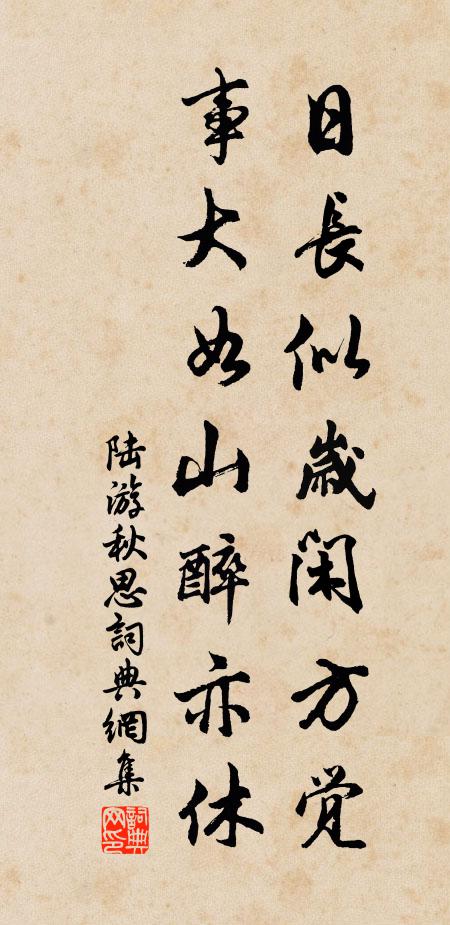 日長似歲閑方覺
事大如山醉亦休
陸游秋思詞典網集
詞典网印